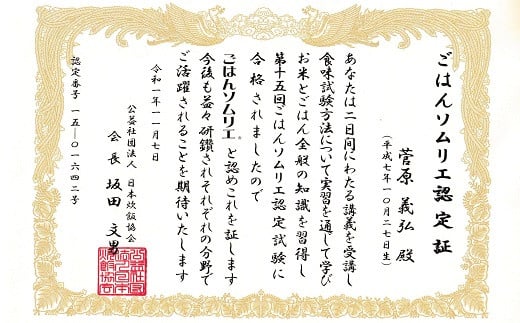 ごはんソムリエ認定証
菅原 義弘 殿
(平成七年一〇月二七日生)
あなたは二日間にわたる講義を受講し
食味試験方法について実習を通して学び
お米とごはん全般の知識を習得し
第十五回ごはんソムリエ認定試験に
合格されましたので
ごはんソムリエ®と認めこれを証します
今後も益々研鑽されそれぞれの分野で
ご活躍されることを期待いたします
令和一年一一月七日
公益社団法人 日本炊飯協会
会長 坂田 文男
認定番号 一五-〇一六四二号